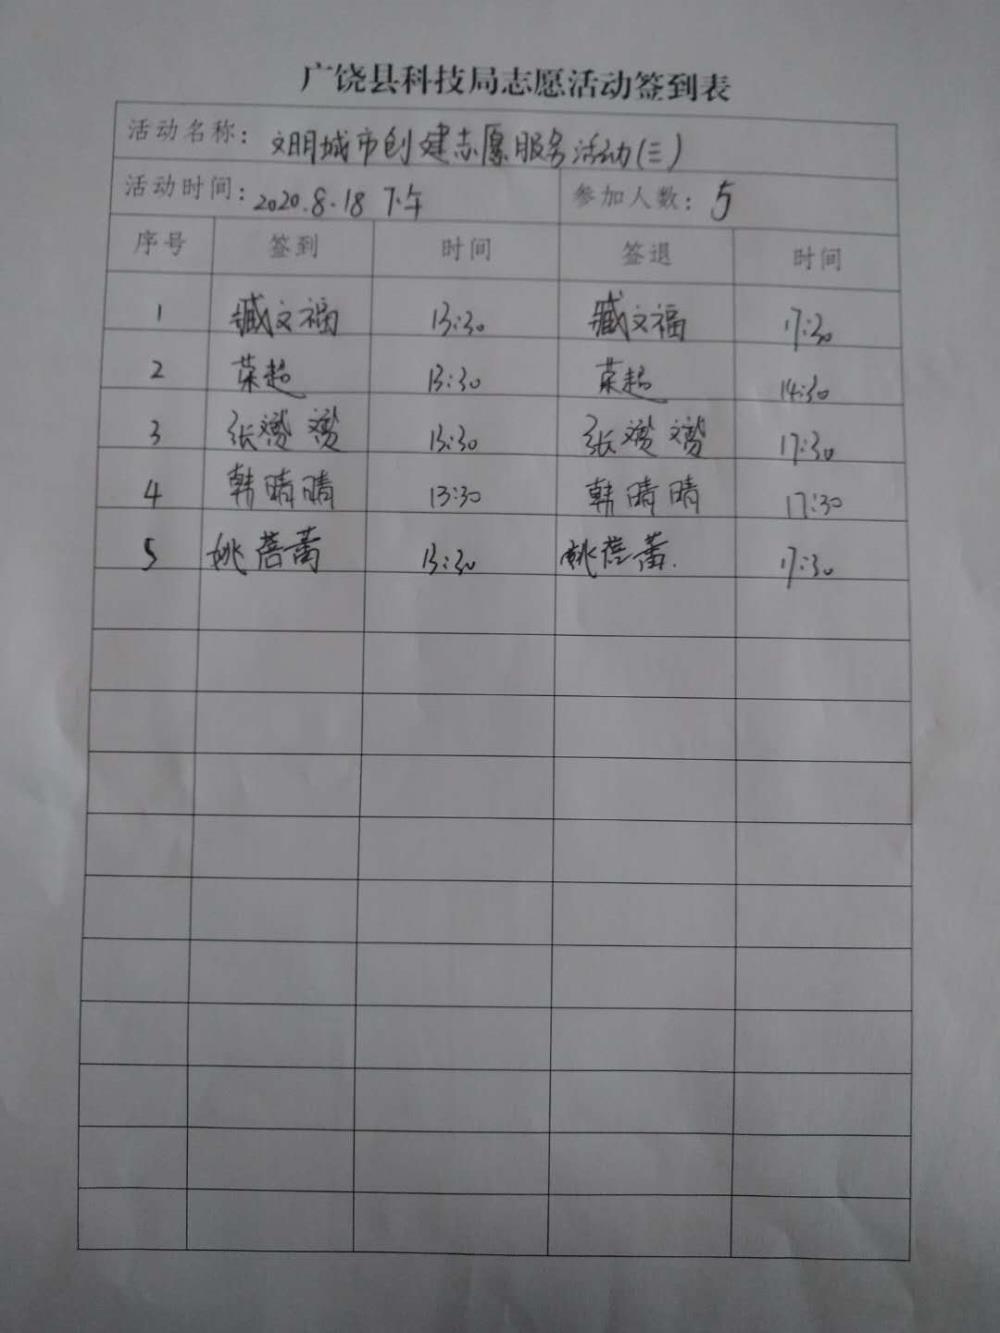 广饶县科技局志愿活动签到表
活动名称: 文明城市创建志愿服务活动(三)
活动时间: 2020.8.18 下午 参加人数: 5
序号 签到 时间 签退 时间
1 臧文福 13:30 臧文福 17:30
2 荣超 13:30 荣超 14:30
3 张赟赟 13:30 张赟赟 17:30
4 韩晴晴 13:30 韩晴晴 17:30
5 姚蓓蕾 13:30 姚蓓蕾 17:30